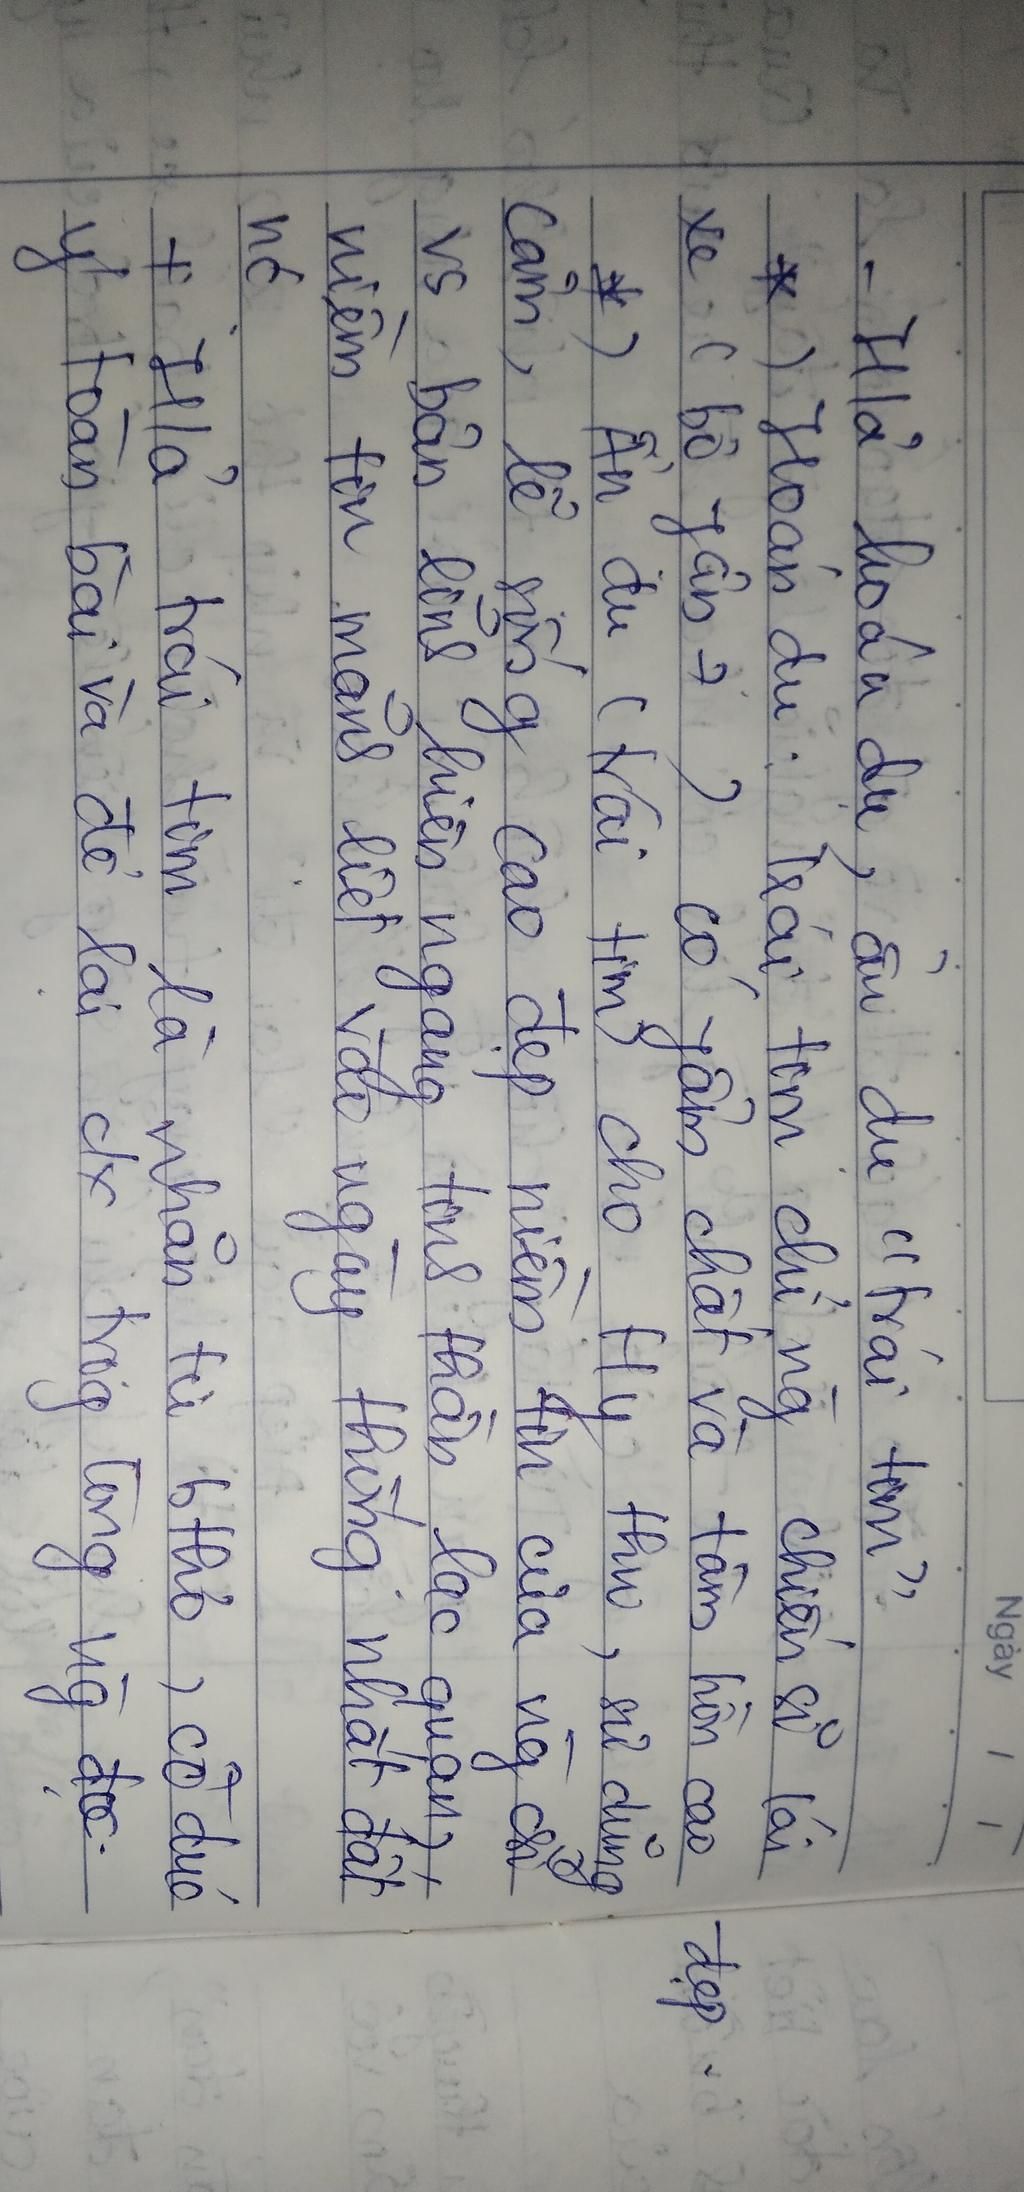 Ngày / /
- H/ả hoán dụ, ẩn dụ "trái tim"
*) Hoán dụ: Trái tim chỉ ng chiến sĩ lái
xe (bộ phận → ) có phẩm chất và tâm hồn cao đẹp.
*) Ẩn dụ (trái tim) cho ty thw, sự dũng
cảm, lẽ sống cao đẹp niềm tin của ng
vs bản lĩnh hiên ngang tinh thần lạc quan,
niềm tin mãnh liệt vào ngày thống nhất đất
nc
+ H/ả trái tim là nhãn tự bthơ, cô đúc
ý toàn bài và để lại c/x trog lòng ng đọc.